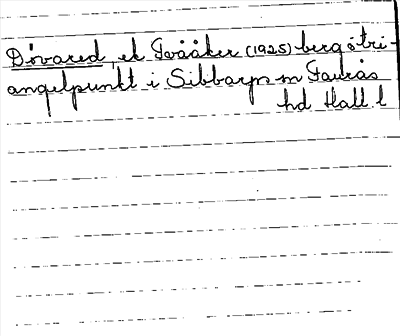 Dövared, ek Tvååker (1925) berg o tri-
angelpunkt i Sibbarps sn Faurås
hd Hall l